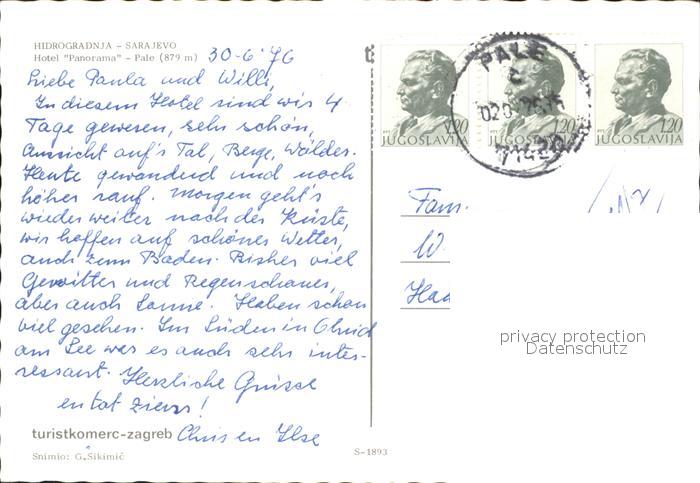 HIDROGRADNJA - SARAJEVO
Hotel "Panorama" - Pale (879 m) 30-6'76
Liebe Paula und Willi,
In diesem Hotel sind wir 4
Tage gewesen, sehr schön,
Aussicht auf's Tal, Berge, Wälder.
Heute gewandend und noch
höher rauf. Morgen geht's
wieder weiter nach der Küste,
wir hoffen auf schönes Wetter,
auch zum Baden. Bisher viel
Gewitter und Regenschauer,
aber auch Sonne. Haben schon
viel gesehen. Im Süden in Ohrid
am See war es auch sehr inter-
ressant. Herzliche Grüsse
en tot ziens!
Chris en Ilse
turistkomerc-zagreb
Snimio: G. Šikimić
S-1893
PALE
1,20 JUGOSLAVIJA
1,20 JUGOSLAVIJA
1,20 JUGOSLAVIJA
Fam.
W.
privacy protection
Datenschutz